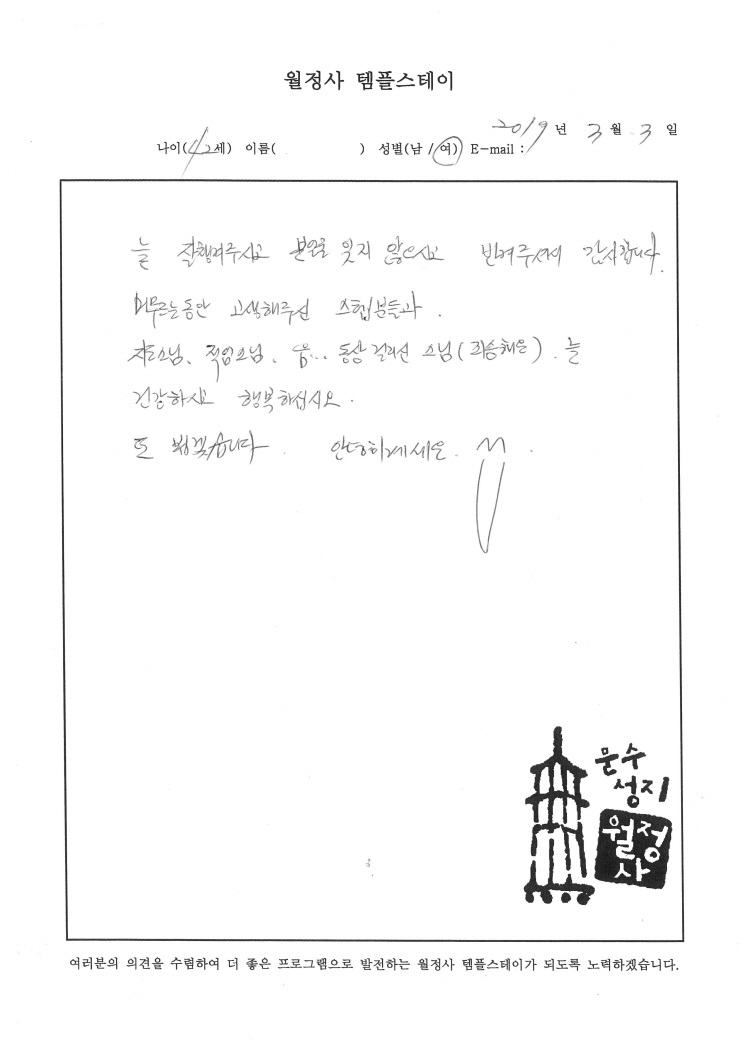 월정사 템플스테이
2019 년 3 월 3 일
나이(42세) 이름( ) 성별(남 / 여) E-mail :
늘 잘챙겨주시고 본분을 잊지 않으시고 반겨주셔서 감사합니다.
머무르는동안 고생해주신 스텝분들과.
스님, 적엄스님, 음.. 동상 걸리신 스님( ). 늘
건강하시고 행복하십시오.
또 뵙겠습니다. 안녕히계세요.
문수
성지
월정
사
여러분의 의견을 수렴하여 더 좋은 프로그램으로 발전하는 월정사 템플스테이가 되도록 노력하겠습니다.